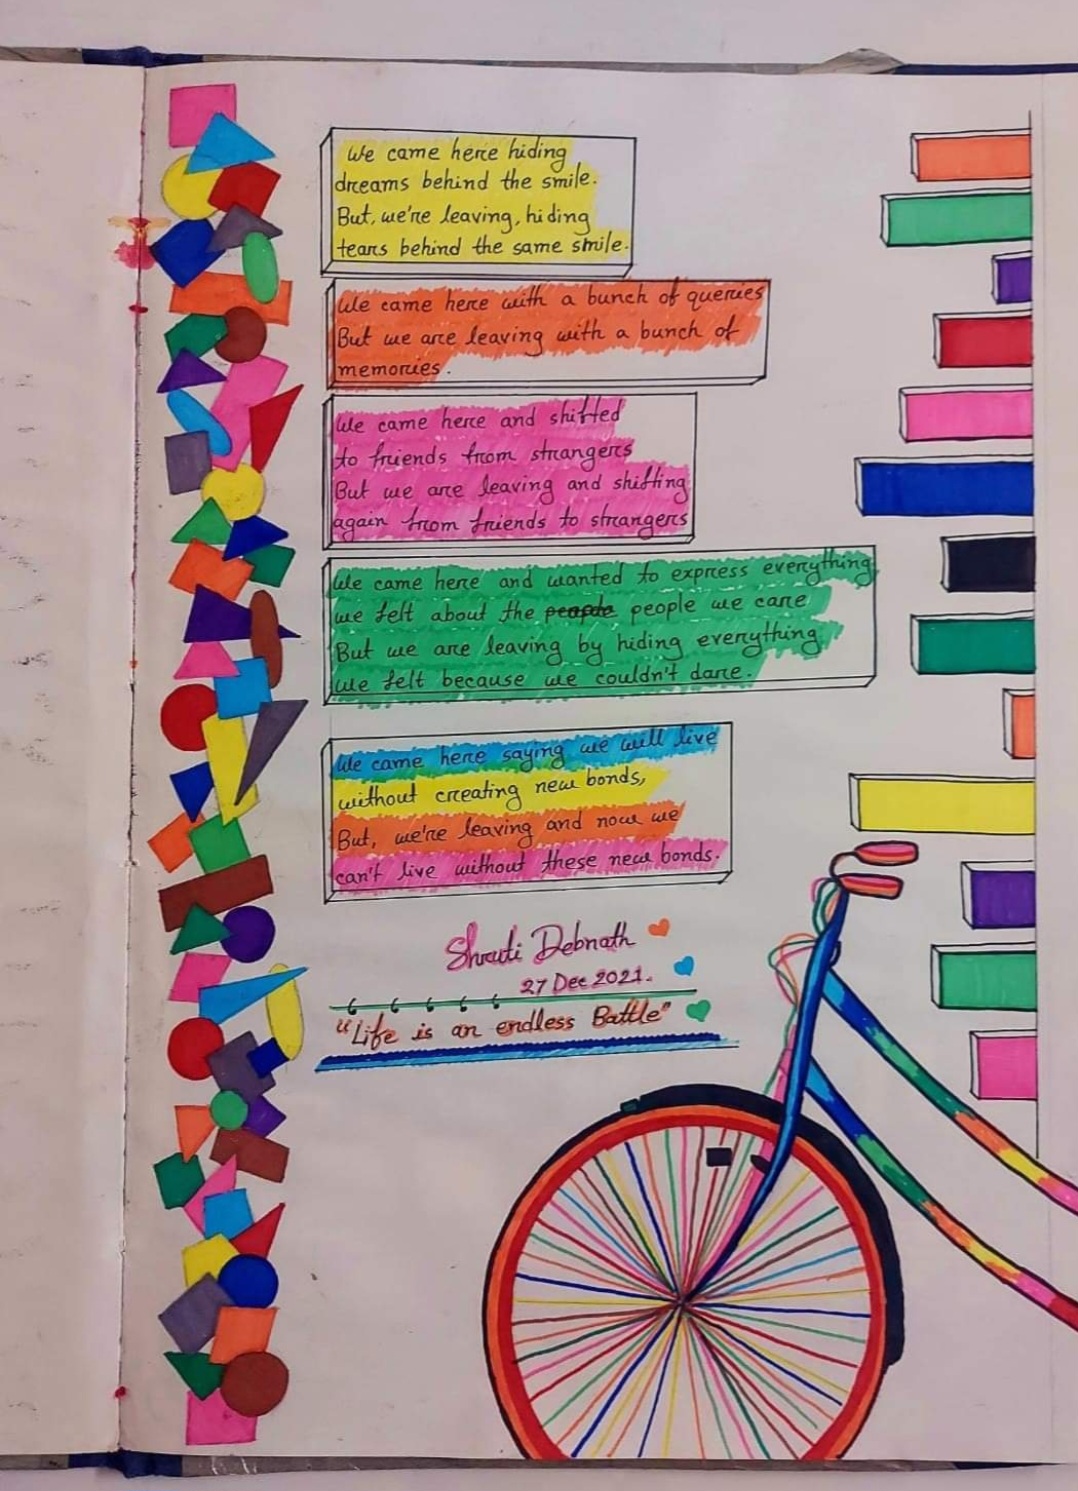 We came here hiding
dreams behind the smile.
But, we're leaving, hiding
tears behind the same smile.
We came here with a bunch of queries
But we are leaving with a bunch of
memories.
We came here and shifted
to friends from strangers
But we are leaving and shifting
again from friends to strangers
We came here and wanted to express everything
we felt about the people we care
But we are leaving by hiding everything
we felt because we couldn't dare.
We came here saying we will live
without creating new bonds,
But, we're leaving and now we
can't live without these new bonds.
Shruti Debnath
27 Dec 2021.
"Life is an endless Battle"